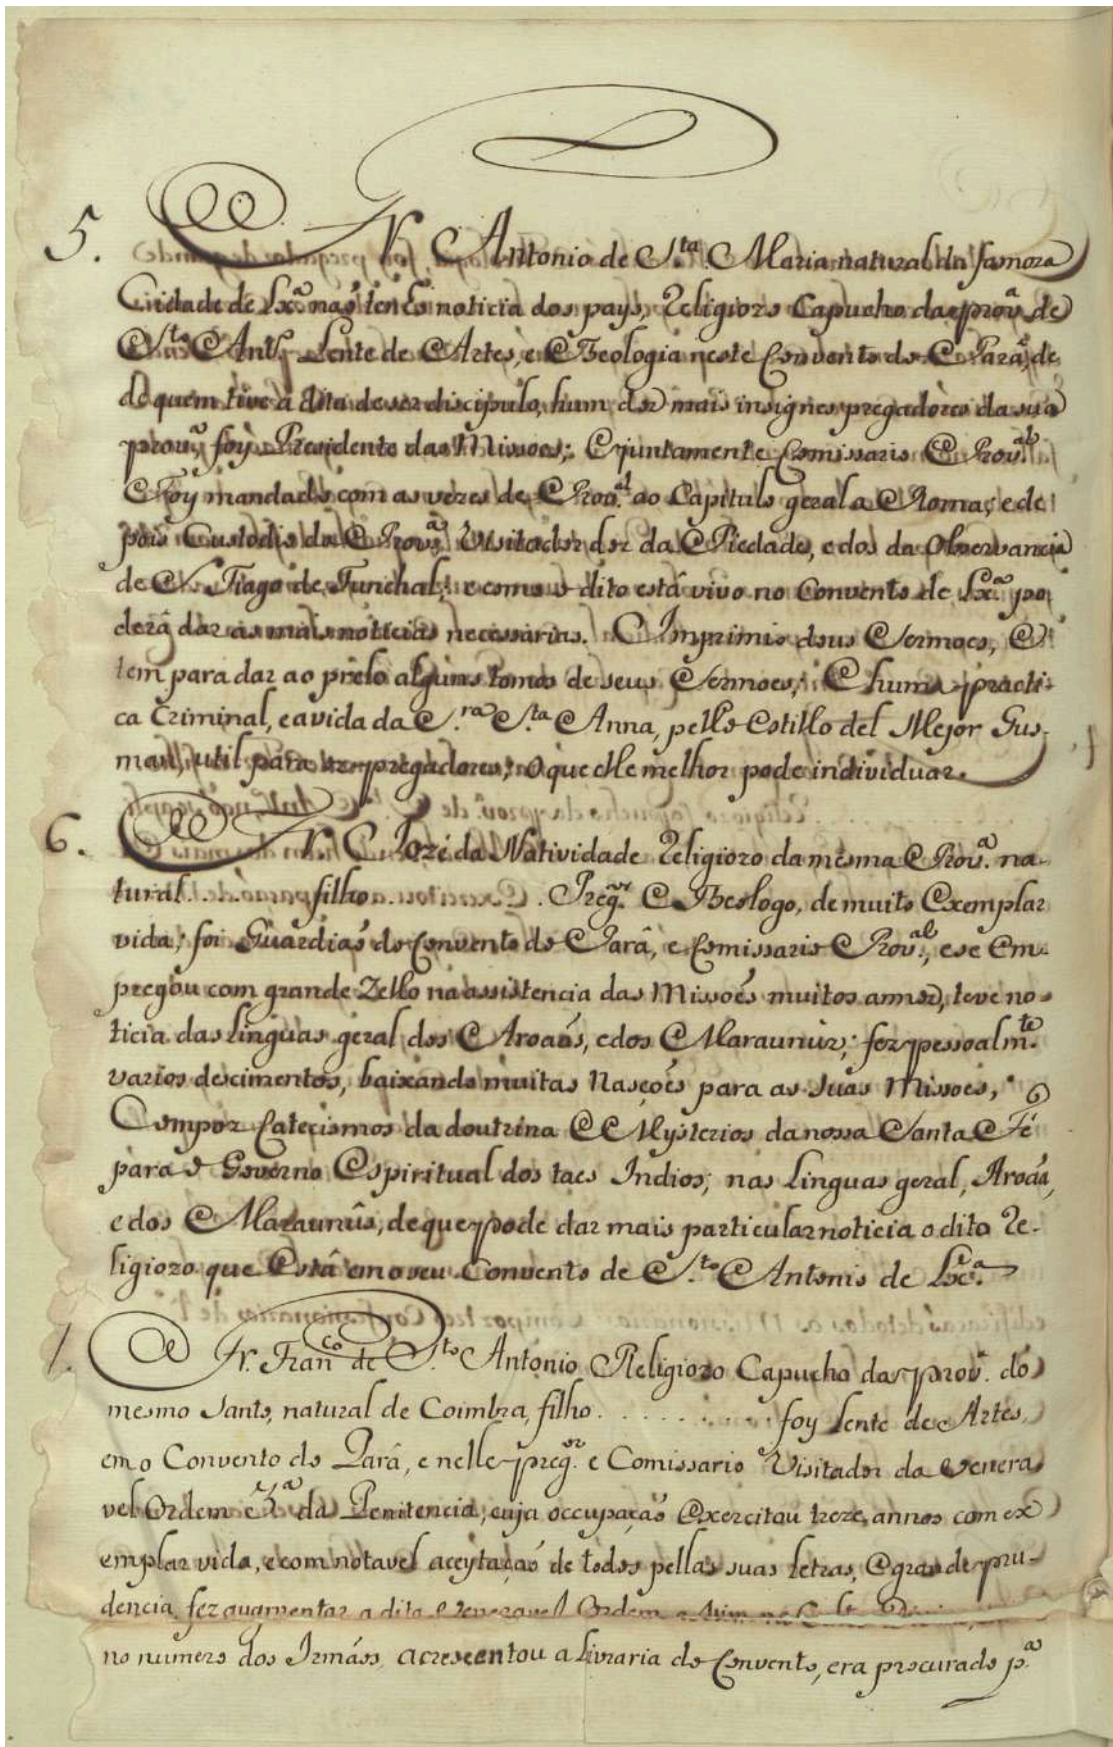 5. Fr. Antonio de S.ta Maria natural da famoza
Cidade de Lx.ª naõ tenho noticia dos pays, Religiozo Capucho da prov.ª de
S.to Ant.º Lente de Artes, e Theologia neste Convento do Parâ, de
de quem tive a dita de ser discipulo, hum dos mais insignes pregadores da sua
prov.ª, foy Prezidente das Missoes; E juntamente Comissario Prov.al
Foy mandado com as vezes de Prov.al ao Capitulo geral a Roma, e de
pois Custodio da Prov.ª Vizitador dos da Piedade, e dos da Observancia
de S. Tiago de Funchal; e como o dito está vivo no Convento de Lx.ª po
derâ dar as mais noticias necessarias. Imprimio dous Sermoes, E
tem para dar ao prelo alguns tomos de seus Sermoes; E huma practi-
ca Criminal, e a vida da S.ra S.ta Anna, pello Estillo del Mejor Gus-
man, util para os pregadores; O que elle melhor pode individuar.
6. Fr. Jozé da Natividade Religiozo da mesma Prov.ª na-
tural . . . filho . . . Preg.or E Theologo, de muito Exemplar
vida; foi Guardiaõ do Convento do Parâ, e Comissario Prov.al, e se Em-
pregou com grande Zello na assistencia das Missoẽs muitos annos, teve no-
ticia das linguas geral dos Aroaãs, e dos Maraunûs; fez pessoalm.te
varios descimentos, baixando muitas Nasçoẽs para as suas Missoẽs,
Compoz Catecismos da doutrina E Mysterios da nossa Santa Fé
para o Governo Espiritual dos taes Indios; nas linguas geral, Aroãa,
e dos Maraunûs, de que pode dar mais particular noticia o dito Re-
ligiozo que Está em o seu Convento de S.to Antonio de Lx.ª
Fr. Fran.co de S.to Antonio Religiozo Capucho da prov.ª do
mesmo Santo, natural de Coimbra, filho . . . . . . . . foy Lente de Artes
em o Convento do Parâ, e nelle preg.or e Comissario Vizitador da Venera
vel Ordem 3.ª da Penitencia, cuja occupaçaõ Exercitou treze annos com ex
emplar vida, e com notavel aceytaçaõ de todos pellas suas letras, E grande pru-
dencia, fez augmentar a dita Veneravel Ordem
no numero dos Irmãos, acrescentou a Livraria do Convento, era procurado p.ª